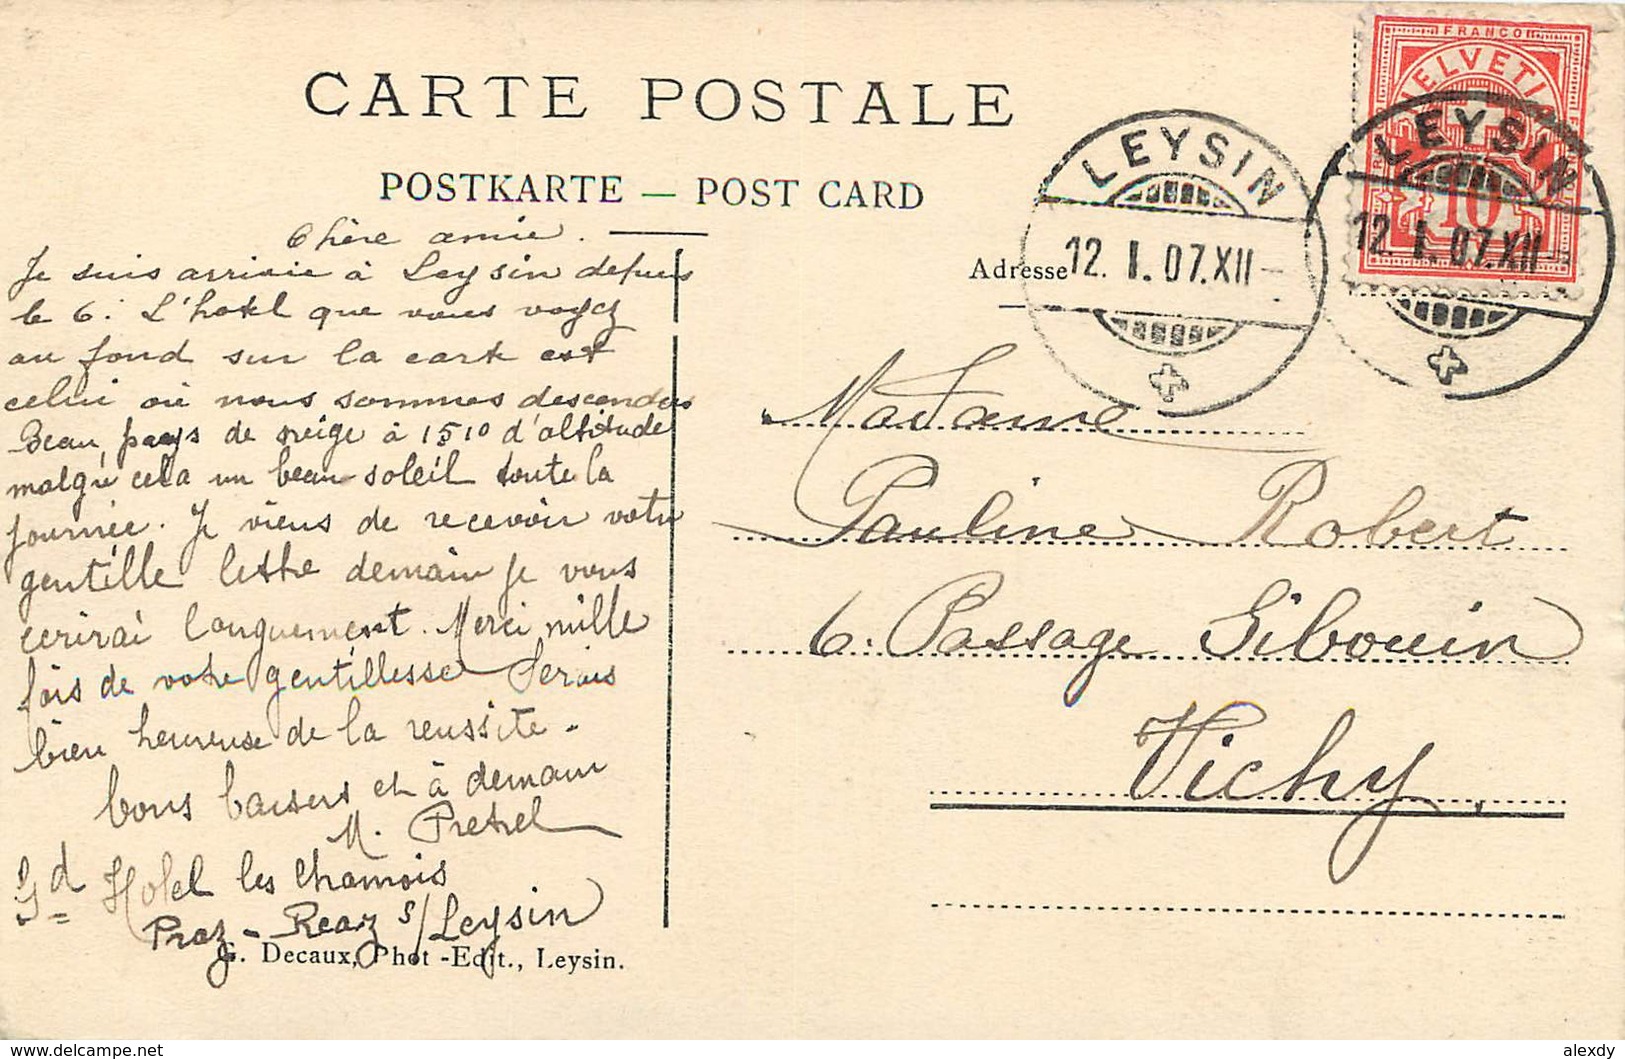 CARTE POSTALE
POSTKARTE — POST CARD
Chère amie.
Je suis arrivée à Leysin depuis
le 6. L'hotel que vous voyez
au fond sur la carte est
celui où nous sommes descendus
Beau pays de neige à 1510 d'altitude
malgré cela un beau soleil toute la
journée. Je viens de recevoir votre
gentille lettre demain je vous
ecrirai longuement. Merci mille
fois de votre gentillesse Serais
bien heureuse de la reussite.
bons baisers et à demain
M. Pretrel
Gd Hotel les Chamois
Praz-Reaz s/Leysin
G. Decaux, Phot-Edit., Leysin.
FRANCO
HELVETIA
10
LEYSIN
12. I. 07. XII-
LEYSIN
12. I. 07. XII-
Adresse
Madame
Pauline Robert
6. Passage Sibouin
Vichy
delcampe.net
alexdy